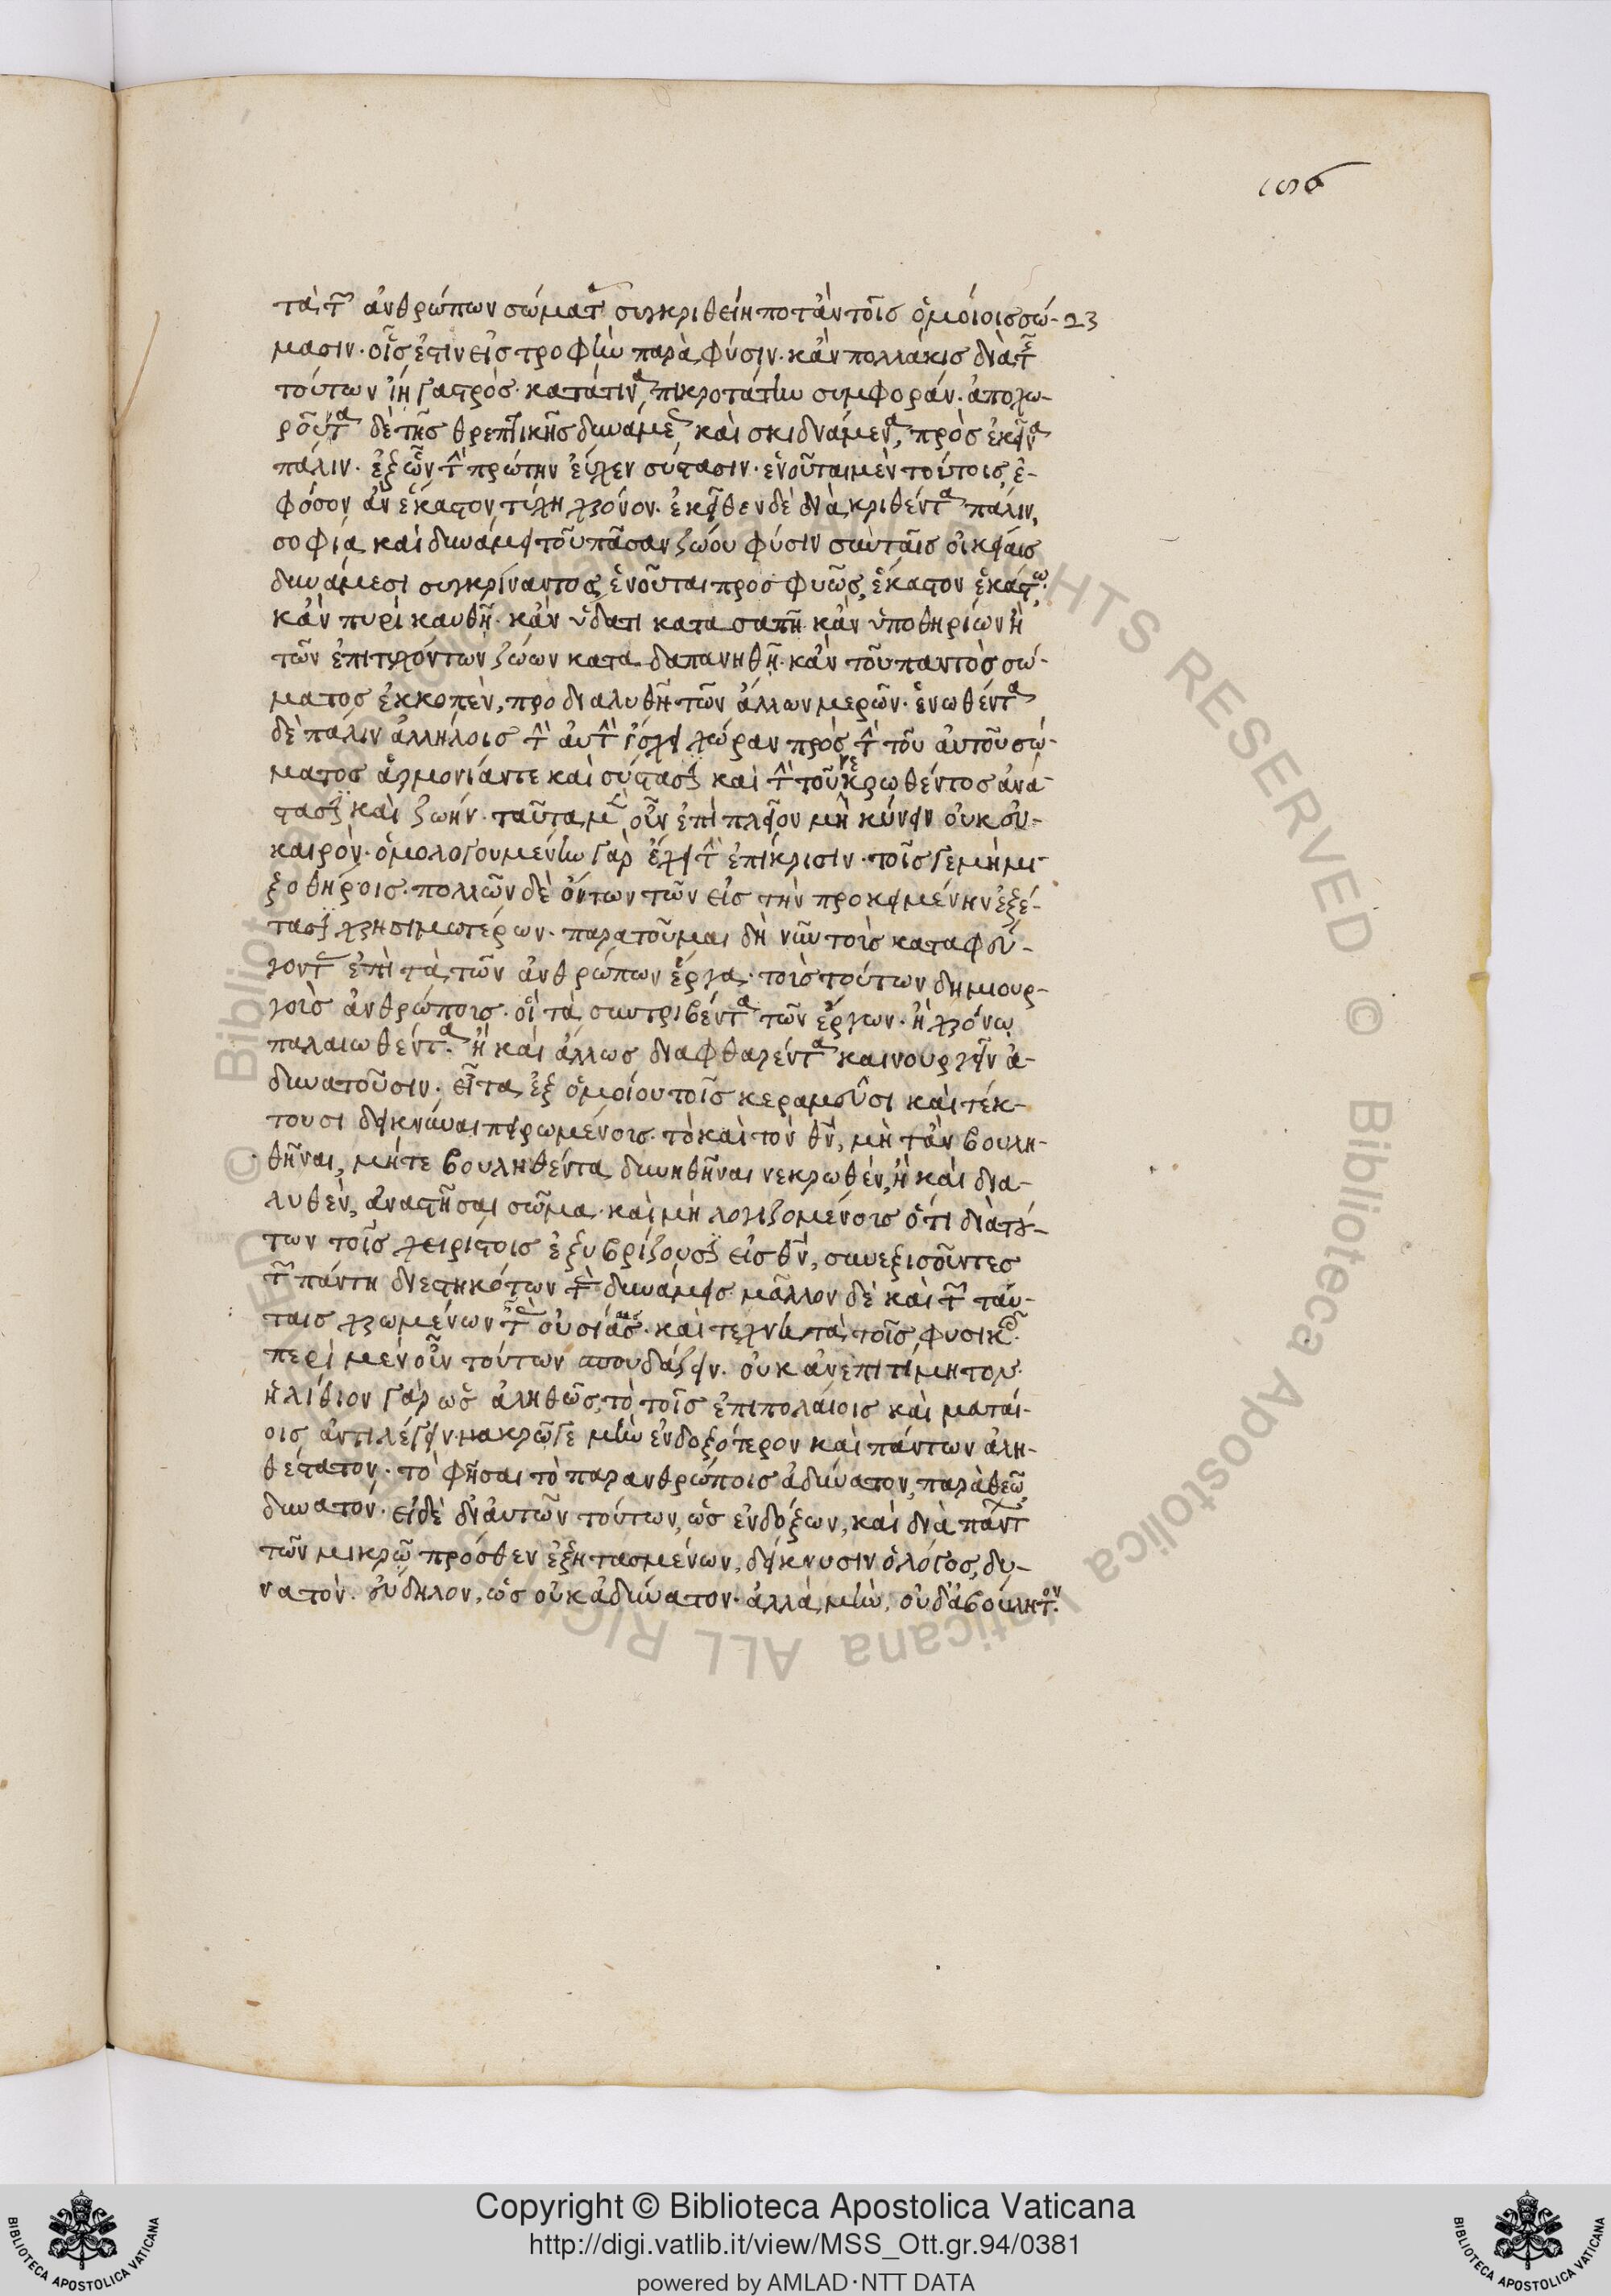 τὰ τῶν ἀνθρώπων σώματα συγκριθείη ποτ' ἂν τοῖς ὁμοίοις σώ- 23
μασιν· οἷς ἐστιν εἰς τροφὴν παρὰ φύσιν· κἂν πολλάκις διὰ τῆς
τούτων ἴῃ γαστρὸς· κατά τινα πικροτάτην συμφοράν· ἀποχω-
ροῦντα δὲ τῆς θρεπτικῆς δυνάμεως καὶ σκιδνάμενα πρὸς ἐκεῖνα
πάλιν· ἐξ ὧν τὴν πρώτην εἶχεν σύστασιν· ἑνοῦται μὲν τούτοις ἐ-
φόσον ἂν ἕκαστον τύχῃ χρόνον· ἐκεῖθεν δὲ διακριθέντα πάλιν,
σοφία καὶ δυνάμει τοῦ πᾶσαν ζώου φύσιν σὺν ταῖς οἰκείαις
δυνάμεσι συγκρίναντος, ἑνοῦται προσφυῶς, ἕκαστον ἑκάστω·
κἂν πυρὶ καυθῆ· κἂν ὕδατι κατασαπῆ· κἂν ὑπὸ θηρίων ἢ
τῶν ἐπιτυχόντων ζώων καταδαπανηθῆ· κἂν τοῦ παντὸς σώ-
ματος ἐκκοπὲν, προδιαλυθῆ τῶν ἄλλων μερῶν· ἑνωθέντα
δὲ πάλιν ἀλλήλοις τὴν αὐτὴν ἴσχει χώραν πρὸς τὴν τοῦ αὐτοῦ σώ-
ματος ἁρμονίαν τε καὶ σύστασιν καὶ τὴν τοῦ νεκρωθέντος ἀνά-
στασιν καὶ ζωήν· ταῦτα μὲν οὖν ἐπὶ πλεῖον μηκύνειν οὐκ εὔ-
καιρὸν· ὁμολογουμένην γὰρ ἔχει τὴν ἐπίκρισιν· τοῖς γε μὴ μι-
ξοθήροις· πολλῶν δὲ ὄντων τῶν εἰς τὴν προκειμένην ἐξέ-
τασιν χρησιμωτέρων· παρατοῦμαι δὴ νῦν τοὺς καταφεύ-
γοντας ἐπὶ τὰ τῶν ἀνθρώπων ἔργα· τοὺς τούτων δημιουρ-
γοὺς ἀνθρώπους· οἳ τὰ συντριβέντα τῶν ἔργων· ἢ χρόνω
παλαιωθέντα· ἢ καὶ ἄλλως διαφθαρέντα καινουργεῖν ἀ-
δυνατοῦσιν· εἶτα ἐξ ὁμοίου τοῖς κεραμεῦσι καὶ τέκ-
τοσι δεικνύναι πειρωμένους· τὸ καὶ τὸν θν, μὴτ' ἂν βουλη-
θῆναι, μήτε βουληθέντα δυνηθῆναι νεκρωθὲν, ἢ καὶ δια-
λυθὲν, ἀναστῆσαι σῶμα· καὶ μὴ λογιζομένους ὅτι διὰ τού-
των τοῖς χειρίστοις ἐξυβρίζουσιν εἰς θν, συνεξισοῦντες
τῶν πάντη διεστηκότων τὰς δυνάμεις· μᾶλλον δὲ καὶ τῶν ταύ-
ταις χρωμένων τὰς οὐσίας· καὶ τεχνητὰ τοῖς φυσικοῖς·
περὶ μὲν οὖν τούτων σπουδάζειν· οὐκ ἀνεπιτίμητον·
ἠλίθιον γὰρ ὡς ἀληθῶς, τὸ τοῖς ἐπιπολαίοις καὶ ματαί-
οις ἀντιλέγειν· μακρῶ γε μὴν ἐνδοξότερον καὶ πάντων ἀλη-
θέστατον· τὸ φῆσαι τὸ παρ ανθρώποις ἀδύνατον, παρὰ θεῶ
δυνατόν· εἰ δὲ δι' αὐτῶν τούτων, ὡς ἐνδόξων, καὶ διὰ πάντων
τῶν μικρῶ πρόσθεν ἐξητασμένων, δείκνυσιν ὁ λόγος, δυ-
νατὸν· εὔδηλον, ὡς οὐκ ἀδύνατον· ἀλλὰ μὴν, οὐδ' ἀβούλητον·
Copyright © Biblioteca Apostolica Vaticana
http://digi.vatlib.it/view/MSS_Ott.gr.94/0381
powered by AMLAD·NTT DATA
BIBLIOTECA APOSTOLICA VATICANA
BIBLIOTECA APOSTOLICA VATICANA
© Biblioteca Apostolica Vaticana ALL RIGHTS RESERVED
© Biblioteca Apostolica Vaticana ALL RIGHTS RESERVED